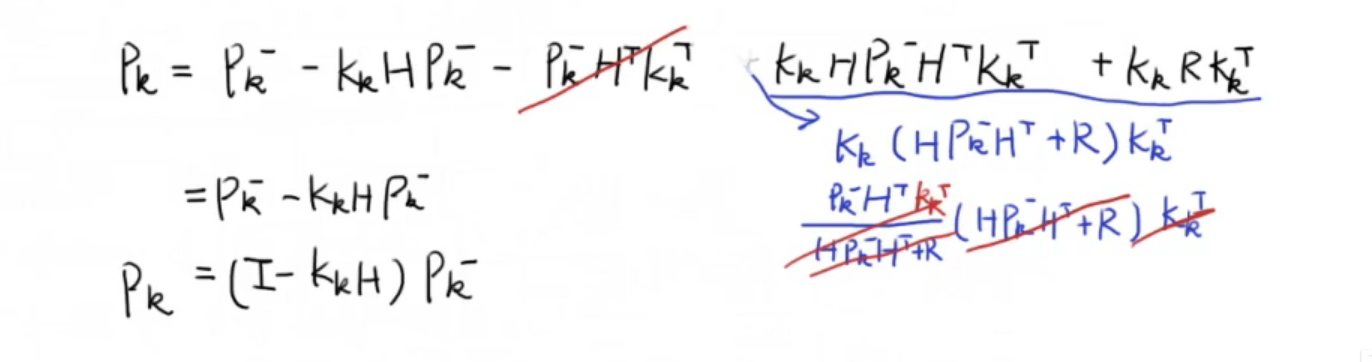 Pₖ = Pₖ⁻ - KₖHPₖ⁻ - Pₖ⁻HᵀKₖᵀ + KₖHPₖ⁻HᵀKₖᵀ + KₖRKₖᵀ
Kₖ (HPₖ⁻Hᵀ + R) Kₖᵀ
= Pₖ⁻ - KₖHPₖ⁻
Pₖ⁻Hᵀ Kₖᵀ
/ HPₖ⁻Hᵀ+R (HPₖ⁻Hᵀ + R) Kₖᵀ
Pₖ = (I - KₖH) Pₖ⁻